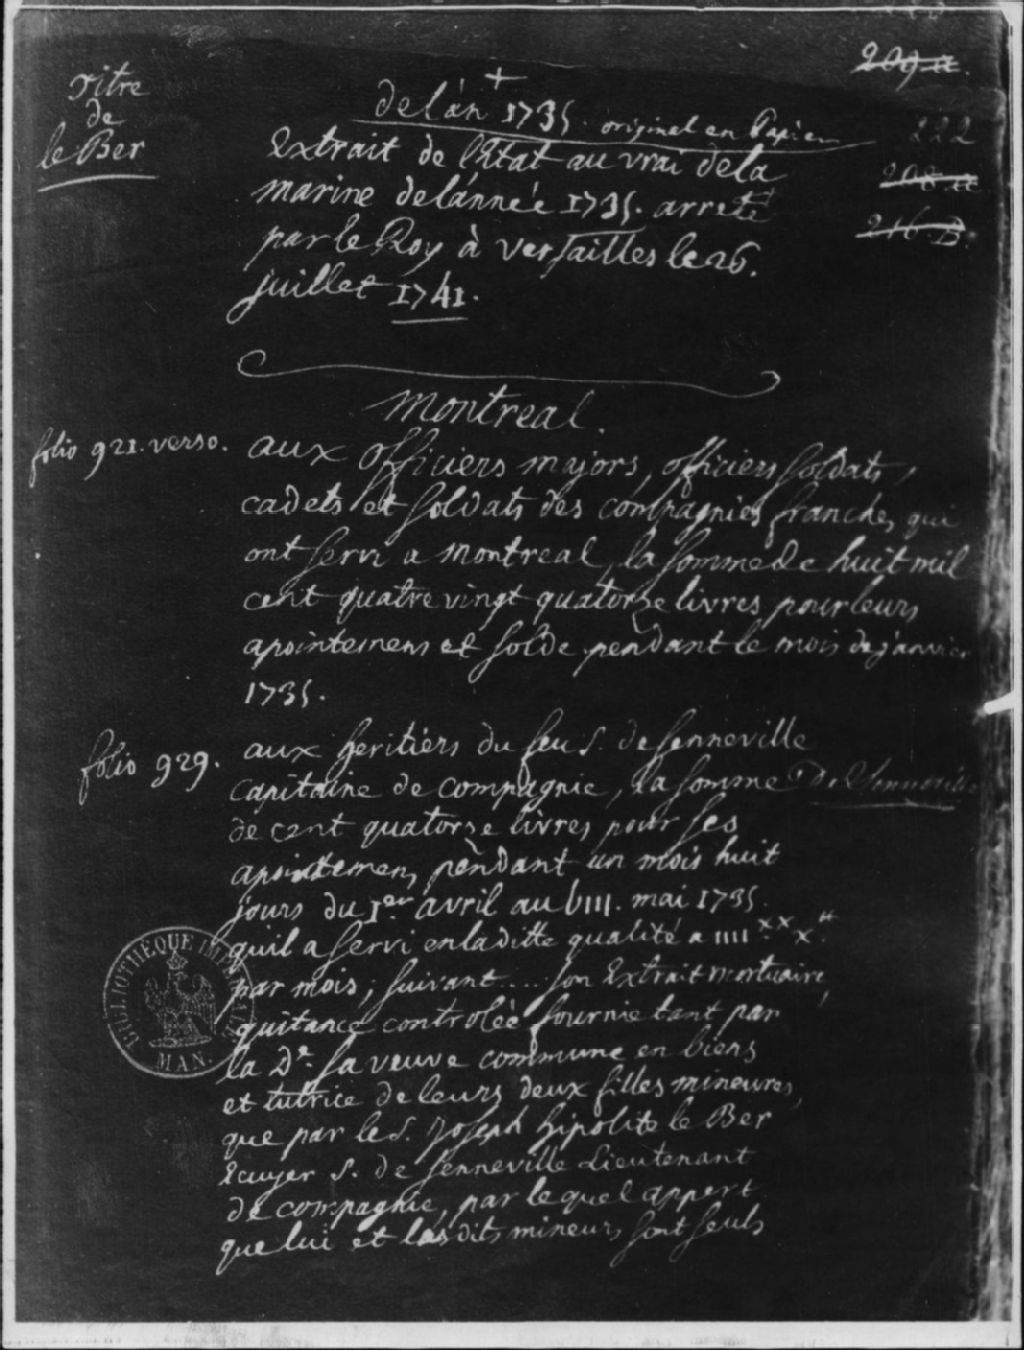 209 a
titre
de
le Ber
+
de l'an 1735. original en Papier
222
Extrait de l'Etat au vrai de la
208 a
marine de l'année 1735. arreté
216 B.
par le Roy à versailles le 26.
juillet 1741.
montreal.
folio 921. verso.
aux officiers majors, officiers soldats,
cadets et soldats des compagnies franches qui
ont servi a montreal, la somme de huit mil
cent quatre vingt quatorze livres pour leurs
apointemens et solde pendant le mois de janvier
1735.
folio 929.
aux heritiers du feu S. de senneville
capitaine de compagnie, la somme De Senneville
de cent quatorze livres pour ses
apointemens pendant un mois huit
jours du 1er avril au VIII. mai 1735.
quil a servi en la ditte qualité a IIII xx x ₶
par mois; suivant.... son Extrait mortuaire,
quitance controlée fournie tant par
la De. sa veuve commune en biens
et tutrice de leurs deux filles mineures,
que par le S. Joseph hipolite le Ber
Ecuyer S. de senneville Lieutenant
de compagnie, par le quel appert
que lui et les dits mineurs sont seuls
BIBLIOTHEQUE IMPERIALE
MAN.